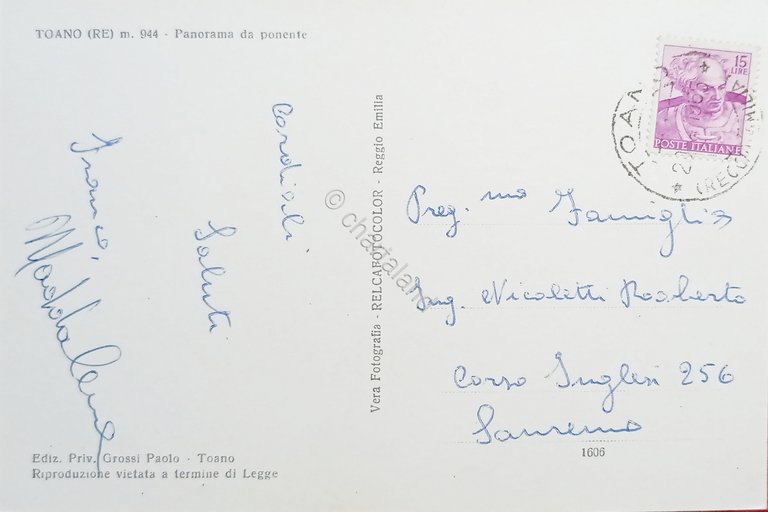 TOANO (RE) m. 944 - Panorama da ponente
Cordiali
Saluti
Franco,
Maddalena
Ediz. Priv. Grossi Paolo - Toano
Riproduzione vietata a termine di Legge
Vera Fotografia - RELCAFOTOCOLOR - Reggio Emilia
© chartaland
15
LIRE
POSTE ITALIANE
TOANO
(REGGIO EMILIA)
Preg.mo Famiglia
Ing. Nicoletti Roberto
Corso Inglesi 256
Sanremo
1606